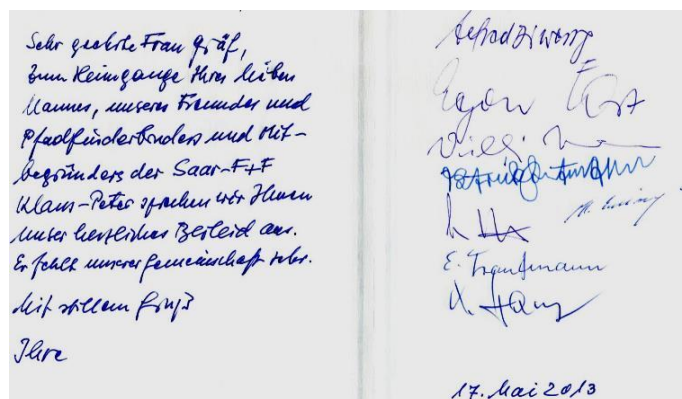 Sehr geehrte Frau Gräf,
zum Heimgange Ihres lieben
Mannes, unseres Freundes und
Pfadfinderbruders und Mit-
begründers der Saar-F+F
Klaus-Peter sprechen wir Ihnen
unser herzliches Beileid aus.
Er fehlt unserer Gemeinschaft sehr.
Mit stillem Gruß
Ihre
Egon
Willi
E. Trautmann
17. Mai 2013